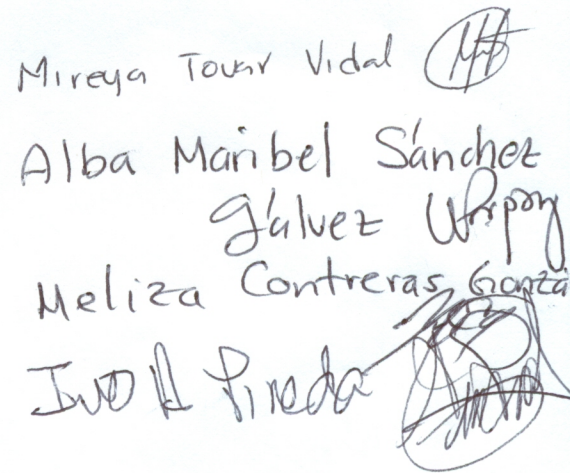 Mireya Tovar Vidal
Alba Maribel Sánchez
Gálvez
Meliza Contreras Gonzá
Ivo H Pineda